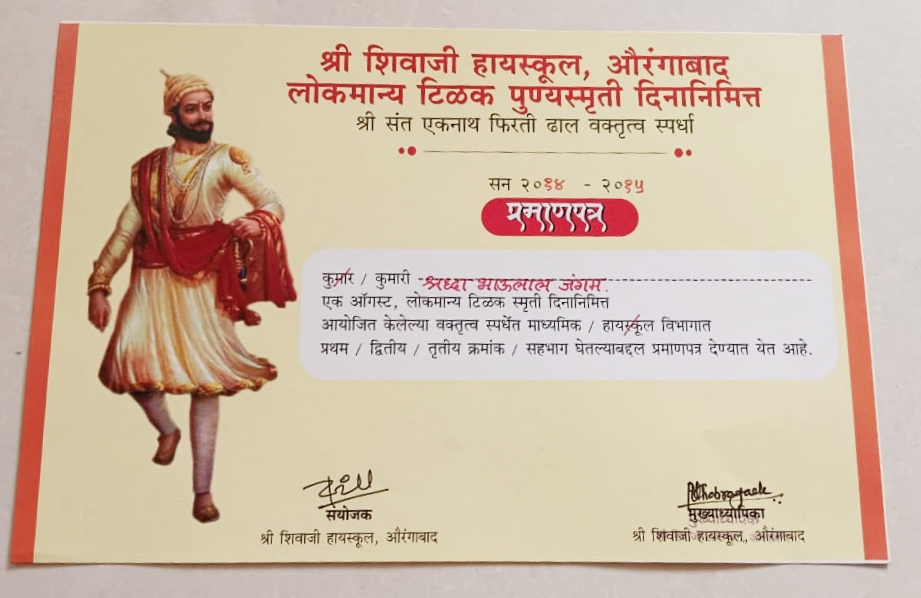 श्री शिवाजी हायस्कूल, औरंगाबाद
लोकमान्य टिळक पुण्यस्मृती दिनानिमित्त
श्री संत एकनाथ फिरती ढाल वक्तृत्व स्पर्धा
सन २०१४ - २०१५
प्रमाणपत्र
कुमार / कुमारी श्रध्दा भाऊलाल जंगम.
एक ऑगस्ट, लोकमान्य टिळक स्मृती दिनानिमित्त
आयोजित केलेल्या वक्तृत्व स्पर्धेत माध्यमिक / हायस्कूल विभागात
प्रथम / द्वितीय / तृतीय क्रमांक / सहभाग घेतल्याबद्दल प्रमाणपत्र देण्यात येत आहे.
संयोजक
श्री शिवाजी हायस्कूल, औरंगाबाद
मुख्याध्यापिका
श्री शिवाजी हायस्कूल, औरंगाबाद